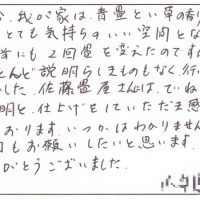 我が家は、青畳とい草の香り
とても気持ちのいい空間とな
前にも2回畳を変えたのですが
とんど説明らしきものもなく、行
した。佐藤畳屋さんは、ていね
明と、仕上げをしていただき感
おります。いつかはわかりません
回もお願いしたいと思います。
がとうございました。